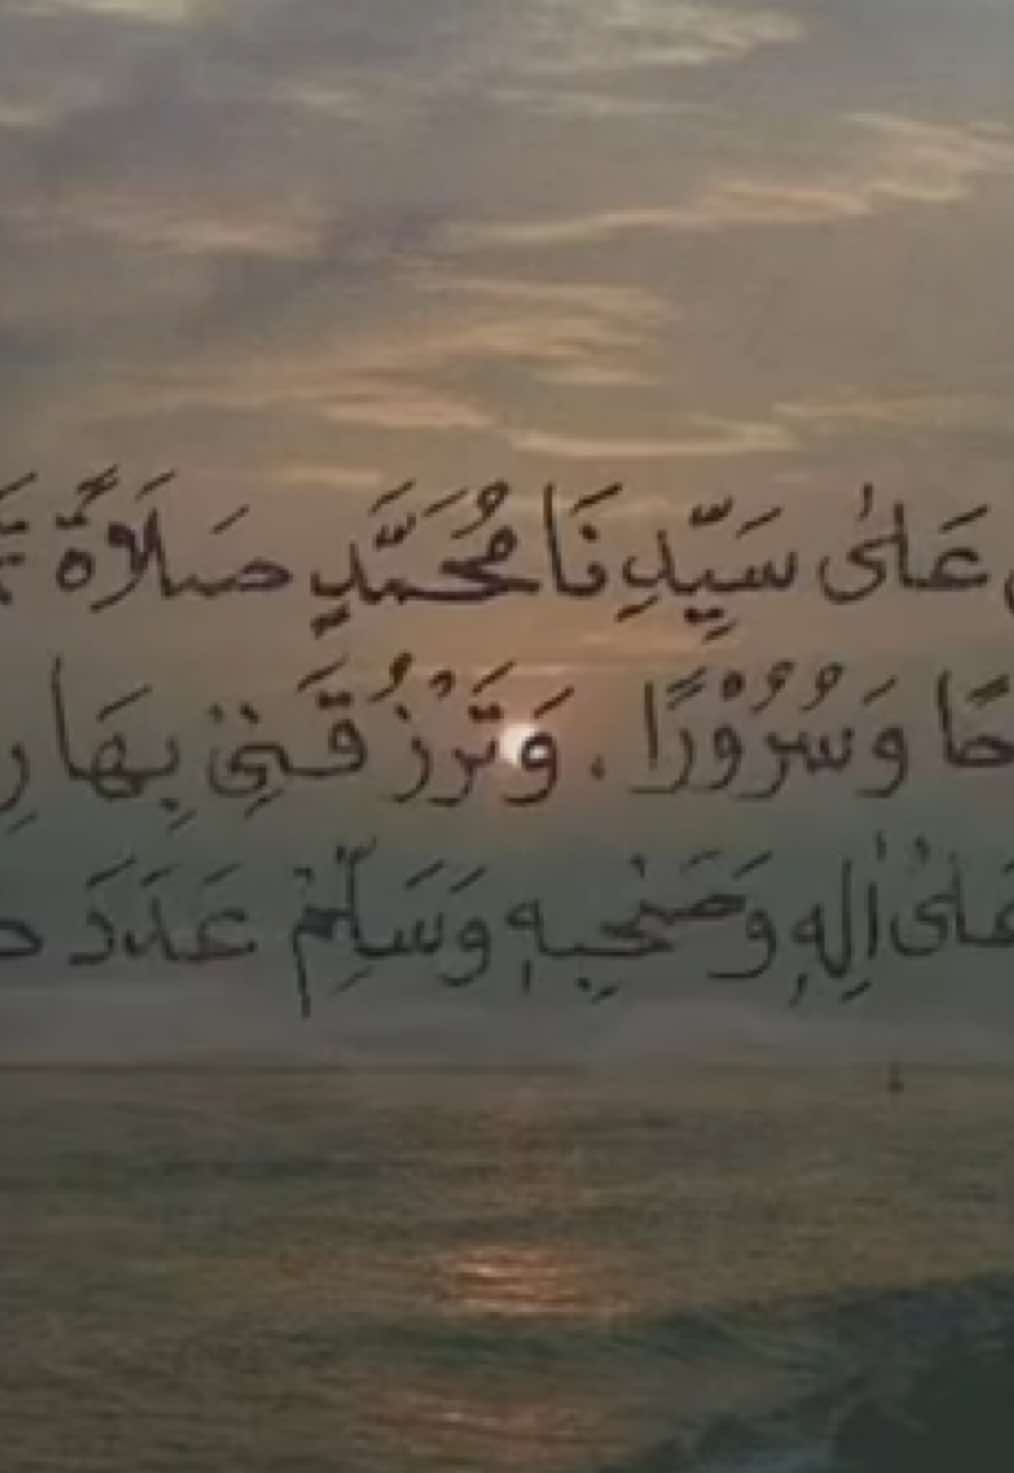 عَلٰى سَيِّدِنَا مُحَمَّدٍ صَلَاةً
وَسُرُوْرًا . وَتَرْزُقَنِيْ بِهَا
اٰلِهٖ وَصَحْبِهٖ وَسَلِّمْ عَدَدَ